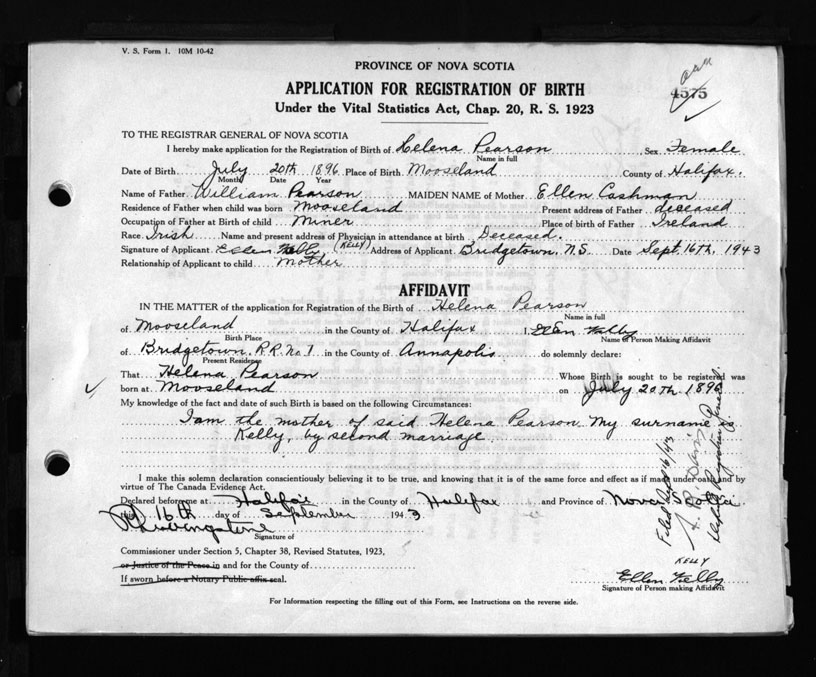 V. S. Form 1. 10M 10-42
PROVINCE OF NOVA SCOTIA
APPLICATION FOR REGISTRATION OF BIRTH
4575
Under the Vital Statistics Act, Chap. 20, R. S. 1923
TO THE REGISTRAR GENERAL OF NOVA SCOTIA
I hereby make application for the Registration of Birth of Helena Pearson Sex Female
Name in full
Date of Birth July 20th 1896 Place of Birth Mooseland County of Halifax.
Month Date Year
Name of Father William Pearson MAIDEN NAME of Mother Ellen Cashman
Residence of Father when child was born Mooseland Present address of Father deceased
Occupation of Father at Birth of child Miner Place of birth of Father Ireland
Race Irish Name and present address of Physician in attendance at birth Deceased.
Signature of Applicant Ellen Kelly (KELLY) Address of Applicant Bridgetown, N.S. Date Sept. 16th, 1943
Relationship of Applicant to child Mother
AFFIDAVIT
IN THE MATTER of the application for Registration of the Birth of Helena Pearson
Name in full
of Mooseland in the County of Halifax I, Ellen Kelly
Birth Place Name of Person Making Affidavit
of Bridgetown, R.R. No. 1 in the County of Annapolis do solemnly declare:
Present Residence
That Helena Pearson Whose Birth is sought to be registered was
born at Mooseland on July 20th 1896
My knowledge of the fact and date of such Birth is based on the following Circumstances:
I am the mother of said Helena Pearson. My surname is
Kelly, by second marriage
I make this solemn declaration conscientiously believing it to be true, and knowing that it is of the same force and effect as if made under oath and by
virtue of The Canada Evidence Act.
Declared before me at Halifax in the County of Halifax and Province of Nova Scotia
this 16th day of September 1943
Signature of
Commissioner under Section 5, Chapter 38, Revised Statutes, 1923,
or Justice of the Peace in and for the County of
If sworn before a Notary Public affix seal.
KELLY
Ellen Kelly
Signature of Person making Affidavit
For Information respecting the filling out of this Form, see Instructions on the reverse side.
Filed
Deputy Registrar General.